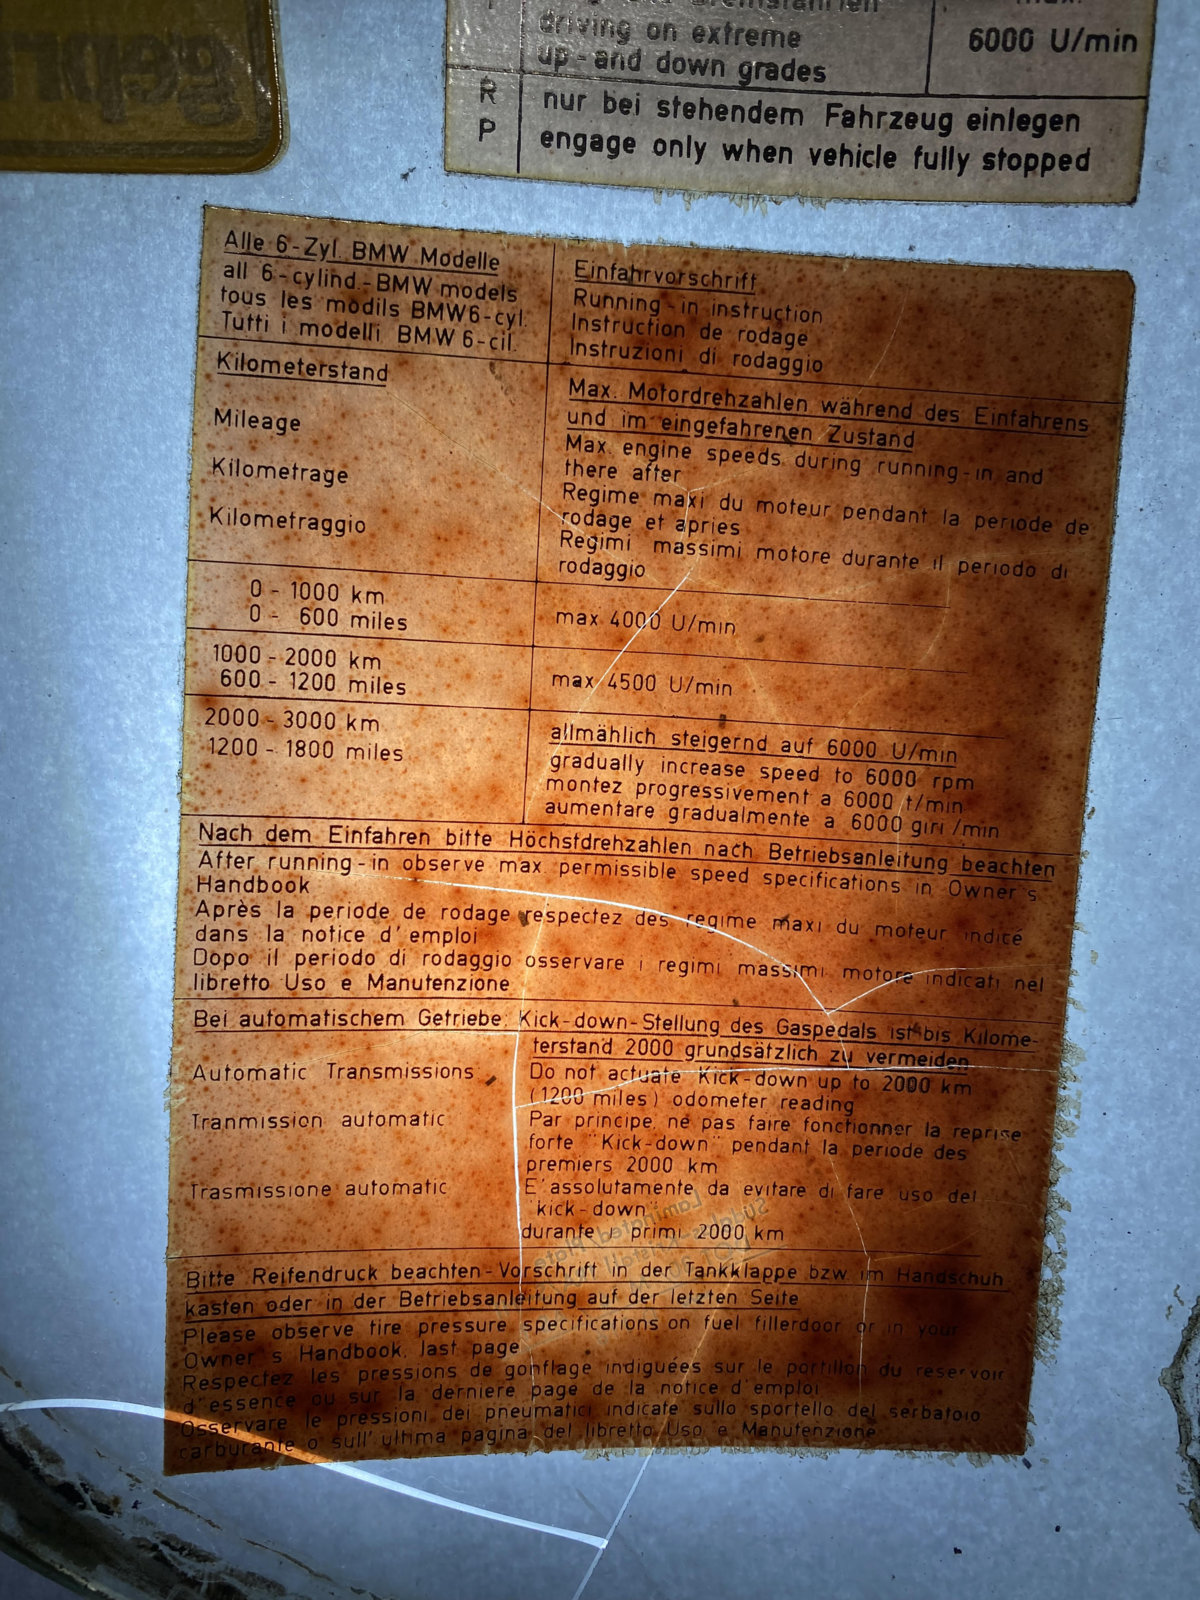 driving on extreme
up - and down grades
6000 U/min
R
P
nur bei stehendem Fahrzeug einlegen
engage only when vehicle fully stopped
Alle 6-Zyl. BMW Modelle
all 6-cylind.-BMW models
tous les modils BMW6-cyl.
Tutti i modelli BMW 6-cil.
Einfahrvorschrift
Running-in instruction
Instruction de rodage
Instruzioni di rodaggio
Kilometerstand
Mileage
Kilometrage
Kilometraggio
Max. Motordrehzahlen während des Einfahrens
und im eingefahrenen Zustand
Max. engine speeds during running-in and
there after
Regime maxi du moteur pendant la periode de
rodage et apries
Regimi massimi motore durante il periodo di
rodaggio
0 - 1000 km
0 - 600 miles
max 4000 U/min
1000 - 2000 km
600 - 1200 miles
max 4500 U/min
2000 - 3000 km
1200 - 1800 miles
allmählich steigernd auf 6000 U/min
gradually increase speed to 6000 rpm
montez progressivement a 6000 t/min
aumentare gradualmente a 6000 giri/min
Nach dem Einfahren bitte Höchstdrehzahlen nach Betriebsanleitung beachten
After running-in observe max. permissible speed specifications in Owner's
Handbook
Après la periode de rodage respectez des regime maxi du moteur indicé
dans la notice d'emploi
Dopo il periodo di rodaggio osservare i regimi massimi motore indicati nel
libretto Uso e Manutenzione
Bei automatischem Getriebe: Kick-down-Stellung des Gaspedals ist bis Kilome-
terstand 2000 grundsätzlich zu vermeiden
Automatic Transmissions
Do not actuate Kick-down up to 2000 km
(1200 miles) odometer reading
Tranmission automatic
Par principe, ne pas faire fonctionner la reprise
forte "Kick-down" pendant la periode des
premiers 2000 km
Trasmissione automatic
E'assolutamente da evitare di fare uso del
"kick-down"
durante i primi 2000 km
Bitte Reifendruck beachten-Vorschrift in der Tankklappe bzw. im Handschuh
kasten oder in der Betriebsanleitung auf der letzten Seite
Please observe tire pressure specifications on fuel fillerdoor or in your
Owner's Handbook, last page
Respectez les pressions de gonflage indiguées sur le portillon du reservoir
d'essence ou sur la derniere page de la notice d'emploi
Osservare le pressioni dei pneumatici indicate sullo sportello del serbatoio
carburante o sull'ultima pagina del libretto Uso e Manutenzione